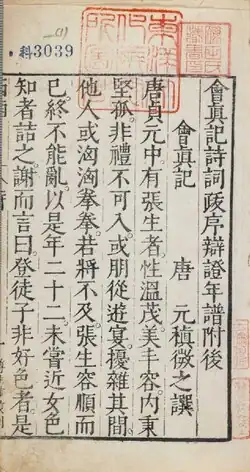 會眞記詩詞跋序辯證年譜附後
會眞記
唐 元稹微之譔
唐貞元中有張生者性溫茂美丰容內秉
堅孤非禮不可入或朋從遊宴擾雜其間
他人或洶洶拳拳若將不及張生容順而
已終不能亂以是年二十二未嘗近女色
知者詰之謝而言曰登徒子非好色者是
科3039